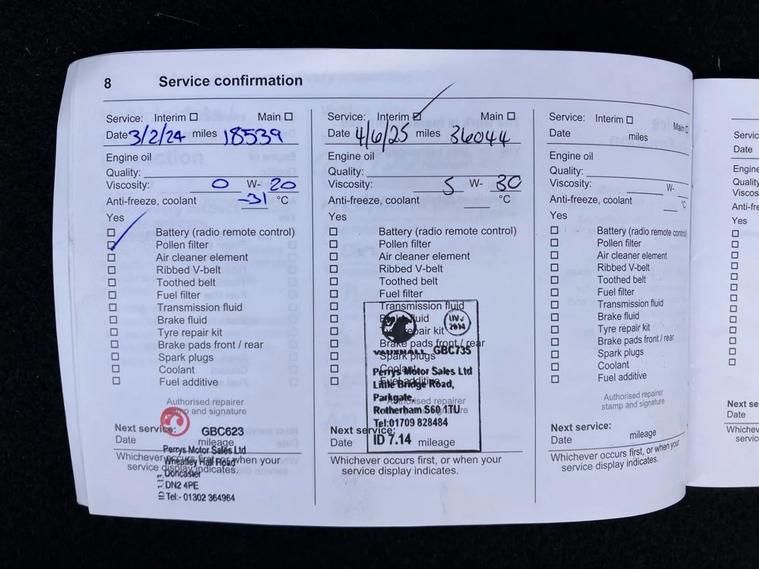 8 Service confirmation
Service: Interim ☐ Main ☐
Date 3/2/24 miles 18539
Engine oil
Quality:
Viscosity: 0 W- 20
Anti-freeze, coolant -31 °C
Yes
☐ Battery (radio remote control)
☑ Pollen filter
☐ Air cleaner element
☐ Ribbed V-belt
☐ Toothed belt
☐ Fuel filter
☐ Transmission fluid
☐ Brake fluid
☐ Tyre repair kit
☐ Brake pads front / rear
☐ Spark plugs
☐ Coolant
☐ Fuel additive
Authorised repairer
stamp and signature
Next service: GBC623
Date mileage
Perrys Motor Sales Ltd
Whichever occurs first, or when your
Wheatley Hall Road
service display indicates.
Doncaster
DN2 4PE
Tel:- 01302 364964
Service: Interim ☑ Main ☐
Date 4/6/25 miles 36044
Engine oil
Quality:
Viscosity: 5 W- 30
Anti-freeze, coolant °C
Yes
☐ Battery (radio remote control)
☐ Pollen filter
☐ Air cleaner element
☐ Ribbed V-belt
☐ Toothed belt
☐ Fuel filter
☐ Transmission fluid
☐ Brake fluid
☐ Tyre repair kit
☐ Brake pads front / rear
☐ Spark plugs
☐ Coolant
☐ Fuel additive
VAUXHALL GBC735
Perrys Motor Sales Ltd
Little Bridge Road,
Parkgate,
Authorised repairer
Rotherham S60 1TU
Tel:01709 828484
ID 7.14
Next service:
Date mileage
Whichever occurs first, or when your
service display indicates.
Service: Interim ☐ Main ☐
Date miles
Engine oil
Quality:
Viscosity: W-
Anti-freeze, coolant °C
Yes
☐ Battery (radio remote control)
☐ Pollen filter
☐ Air cleaner element
☐ Ribbed V-belt
☐ Toothed belt
☐ Fuel filter
☐ Transmission fluid
☐ Brake fluid
☐ Tyre repair kit
☐ Brake pads front / rear
☐ Spark plugs
☐ Coolant
☐ Fuel additive
Authorised repairer
stamp and signature
Next service:
Date mileage
Whichever occurs first, or when your
service display indicates.
Servic
Date
Engine
Quality
Viscos
Anti-fre
Yes
Next se
Date
Whichev
servic